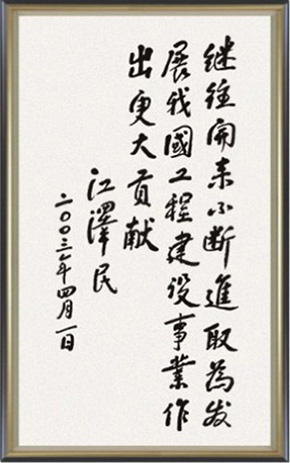 继往開来不断進取為发
展我國工程建设事業作
出更大贡献
江澤民
二〇〇三年四月一日